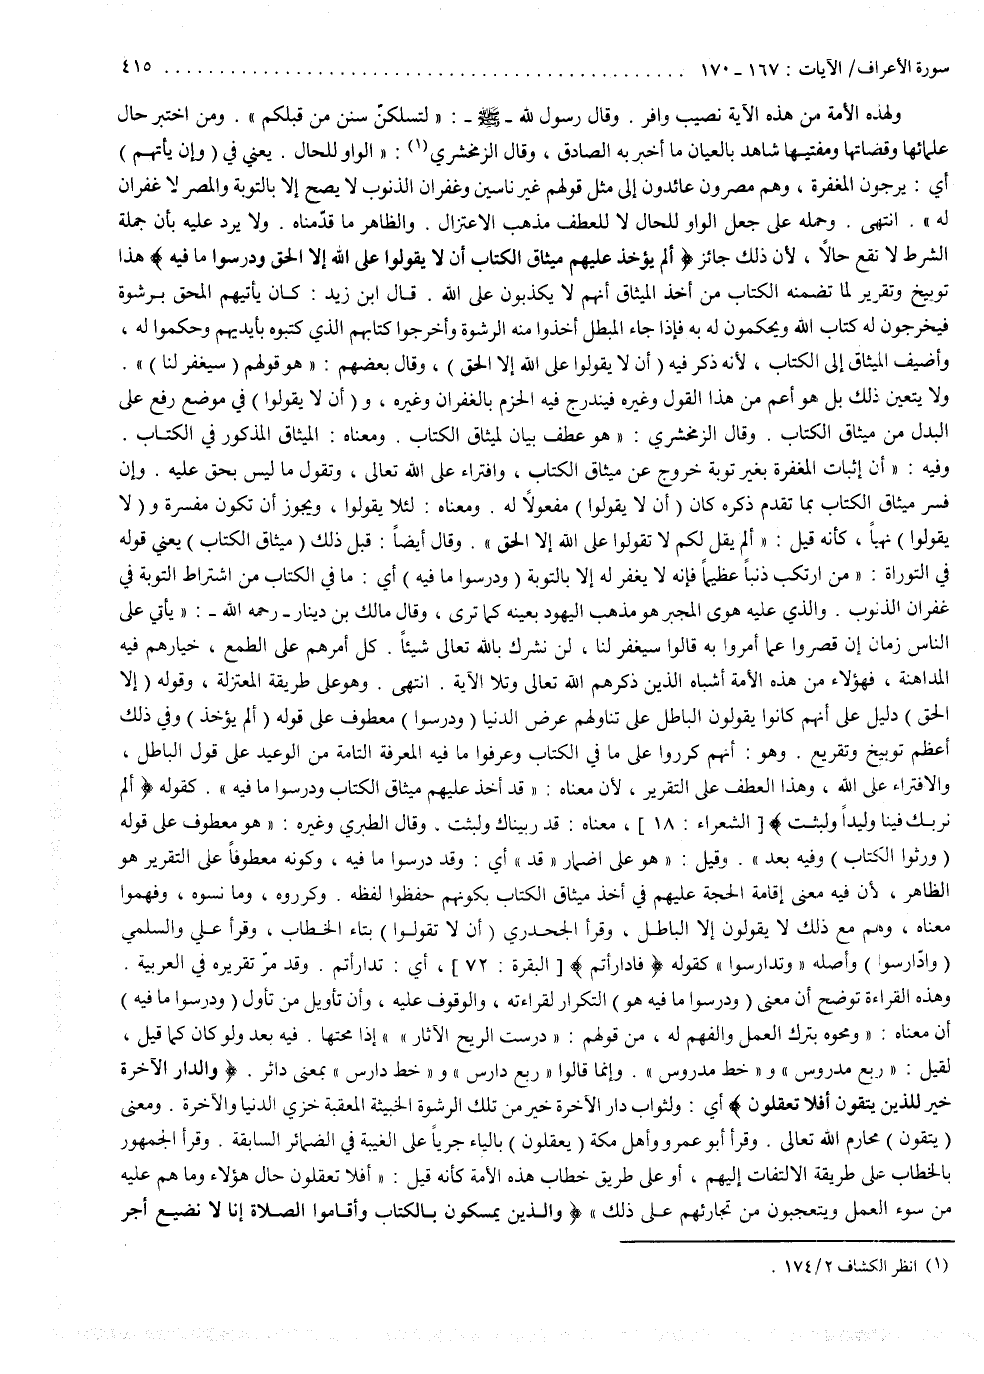 سورة الأعراف/ الآيات : ١٦٧ - ١٧٠ ................................................ ٤١٥
ولهذه الأمة من هذه الآية نصيب وافر . وقال رسول لله - ﷺ - : « لتسلكنّ سنن من قبلكم » . ومن اختبر حال
علمائها وقضاتها ومفتيها شاهد بالعيان ما أخبر به الصادق ، وقال الزمخشري(١) : « الواو للحال . يعني في ( وإن يأتهم )
أي : يرجون المغفرة ، وهم مصرون عائدون إلى مثل قولهم غير ناسين وغفران الذنوب لا يصح إلا بالتوبة والمصر لا غفران
له » . انتهى . وحمله على جعل الواو للحال لا للعطف مذهب الاعتزال . والظاهر ما قدّمناه . ولا يرد عليه بأن جملة
الشرط لا نقع حالاً ، لأن ذلك جائز ﴿ ألم يؤخذ عليهم ميثاق الكتاب أن لا يقولوا على الله إلا الحق ودرسوا ما فيه ﴾ هذا
توبيخ وتقرير لما تضمنه الكتاب من أخذ الميثاق أنهم لا يكذبون على الله . قال ابن زيد : كان يأتيهم المحق برشوة
فيخرجون له كتاب الله ويحكمون له به فإذا جاء المبطل أخذوا منه الرشوة وأخرجوا كتابهم الذي كتبوه بأيديهم وحكموا له ،
وأضيف الميثاق إلى الكتاب ، لأنه ذكر فيه ( أن لا يقولوا على الله إلا الحق ) ، وقال بعضهم : « هو قولهم ( سيغفر لنا ) » .
ولا يتعين ذلك بل هو أعم من هذا القول وغيره فيندرج فيه الحزم بالغفران وغيره ، و ( أن لا يقولوا ) في موضع رفع على
البدل من ميثاق الكتاب . وقال الزمخشري : « هو عطف بيان لميثاق الكتاب . ومعناه : الميثاق المذكور في الكتاب .
وفيه : « أن إثبات المغفرة بغير توبة خروج عن ميثاق الكتاب ، وافتراء على الله تعالى ، وتقول ما ليس بحق عليه . وإن
فسر ميثاق الكتاب بما تقدم ذكره كان ( أن لا يقولوا ) مفعولاً له . ومعناه : لئلا يقولوا ، ويجوز أن تكون مفسرة و ( لا
يقولوا ) نهياً ، كأنه قيل : « ألم يقل لكم لا تقولوا على الله إلا الحق » . وقال أيضاً : قبل ذلك ( ميثاق الكتاب ) يعني قوله
في التوراة : « من ارتكب ذنباً عظيماً فإنه لا يغفر له إلا بالتوبة ( ودرسوا ما فيه ) أي : ما في الكتاب من اشتراط التوبة في
غفران الذنوب . والذي عليه هوى المجبر هو مذهب اليهود بعينه كما ترى ، وقال مالك بن دينار - رحمه الله - : « يأتي على
الناس زمان إن قصروا عما أمروا به قالوا سيغفر لنا ، لن نشرك بالله تعالى شيئاً . كل أمرهم على الطمع ، خيارهم فيه
المداهنة ، فهؤلاء من هذه الأمة أشباه الذين ذكرهم الله تعالى وتلا الآية . انتهى . وهو على طريقة المعتزلة ، وقوله ( إلا
الحق ) دليل على أنهم كانوا يقولون الباطل على تناولهم عرض الدنيا ( ودرسوا ) معطوف على قوله ( ألم يؤخذ ) وفي ذلك
أعظم توبيخ وتقريع . وهو : أنهم كرروا على ما في الكتاب وعرفوا ما فيه المعرفة التامة من الوعيد على قول الباطل ،
والافتراء على الله ، وهذا العطف على التقرير ، لأن معناه : « قد أخذ عليهم ميثاق الكتاب ودرسوا ما فيه » . كقوله ﴿ ألم
نربك فينا وليداً ولبثت ﴾ [ الشعراء : ١٨ ] ، معناه : قد ربيناك ولبثت . وقال الطبري وغيره : « هو معطوف على قوله
( ورثوا الكتاب ) وفيه بعد » . وقيل : « هو على اضمار « قد » أي : وقد درسوا ما فيه ، وكونه معطوفاً على التقرير هو
الظاهر ، لأن فيه معنى إقامة الحجة عليهم في أخذ ميثاق الكتاب بكونهم حفظوا لفظه . وكرروه ، وما نسوه ، وفهموا
معناه ، وهم مع ذلك لا يقولون إلا الباطل ، وقرأ الجحدري ( أن لا تقولوا ) بتاء الخطاب ، وقرأ علي والسلمي
( وادّارسوا ) وأصله « وتدارسوا » كقوله ﴿ فادارأتم ﴾ [ البقرة : ٧٢ ] ، أي : تدارأتم . وقد مرّ تقريره في العربية .
وهذه القراءة توضح أن معنى ( ودرسوا ما فيه هو ) التكرار لقراءته ، والوقوف عليه ، وأن تأويل من تأول ( ودرسوا ما فيه )
أن معناه : « ومحوه بترك العمل والفهم له ، من قولهم : « درست الريح الآثار » » إذا محتها . فيه بعد ولو كان كما قيل ،
لقيل : « ربع مدروس » و « خط مدروس » . وإنما قالوا « ربع دارس » و « خط دارس » بمعنى داثر . ﴿ والدار الآخرة
خير للذين يتقون أفلا تعقلون ﴾ أي : ولثواب دار الآخرة خير من تلك الرشوة الخبيثة المعقبة خزي الدنيا والآخرة . ومعنى
( يتقون ) محارم الله تعالى . وقرأ أبو عمرو وأهل مكة ( يعقلون ) بالياء جرياً على الغيبة في الضمائر السابقة . وقرأ الجمهور
بالخطاب على طريقة الالتفات إليهم ، أو على طريق خطاب هذه الأمة كأنه قيل : « أفلا تعقلون حال هؤلاء وما هم عليه
من سوء العمل ويتعجبون من تجارئهم على ذلك » ﴿ والذين يمسكون بالكتاب وأقاموا الصلاة إنا لا نضيع أجر
(١) انظر الكشاف ١٧٤/٢ .